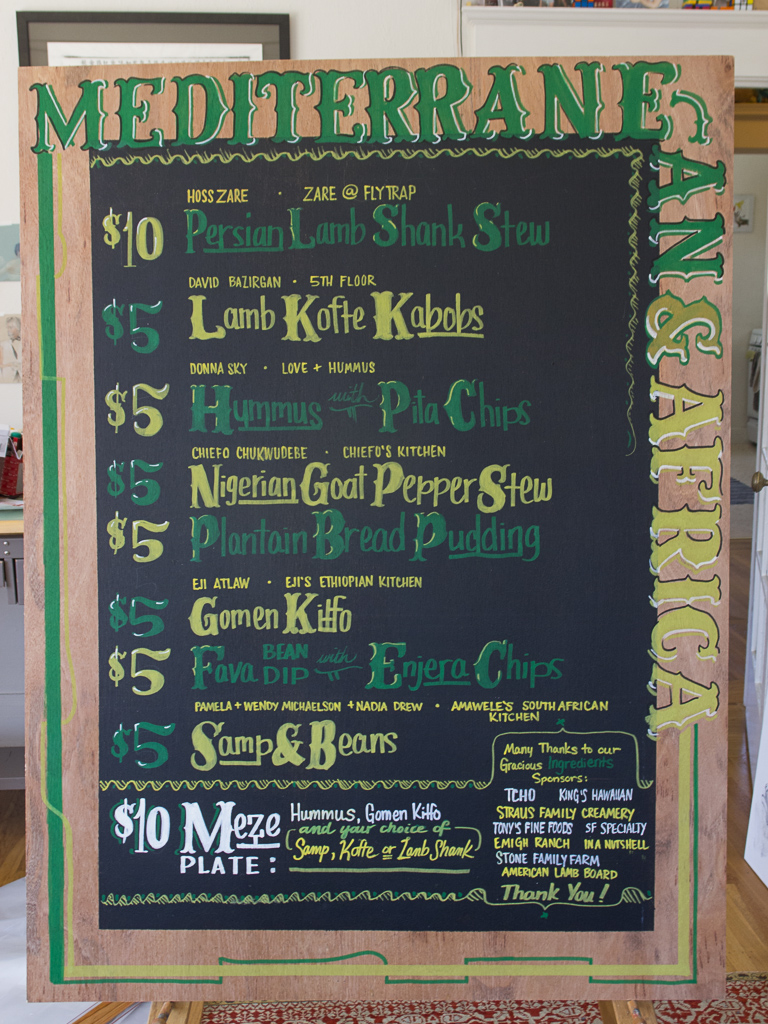 MEDITERRANEAN & AFRICA
HOSS ZARE · ZARE @ FLYTRAP
$10 Persian Lamb Shank Stew
DAVID BAZIRGAN · 5TH FLOOR
$5 Lamb Kofte Kabobs
DONNA SKY · LOVE + HUMMUS
$5 Hummus with Pita Chips
CHIEFO CHUKWUDEBE · CHIEFO'S KITCHEN
$5 Nigerian Goat Pepper Stew
$5 Plantain Bread Pudding
EJI ATLAW · EJI'S ETHIOPIAN KITCHEN
$5 Gomen Kitfo
$5 Fava BEAN DIP with Enjera Chips
PAMELA + WENDY MICHAELSON + NADIA DREW · AMAWELE'S SOUTH AFRICAN
KITCHEN
$5 Samp & Beans
$10 Meze PLATE:
Hummus, Gomen Kitfo
and your choice of
Samp, Kofte or Lamb Shank
Many Thanks to our
Gracious Ingredients
Sponsors:
TCHO KING'S HAWAIIAN
STRAUS FAMILY CREAMERY
TONY'S FINE FOODS SF SPECIALTY
EMIGH RANCH IN A NUTSHELL
STONE FAMILY FARM
AMERICAN LAMB BOARD
Thank You!